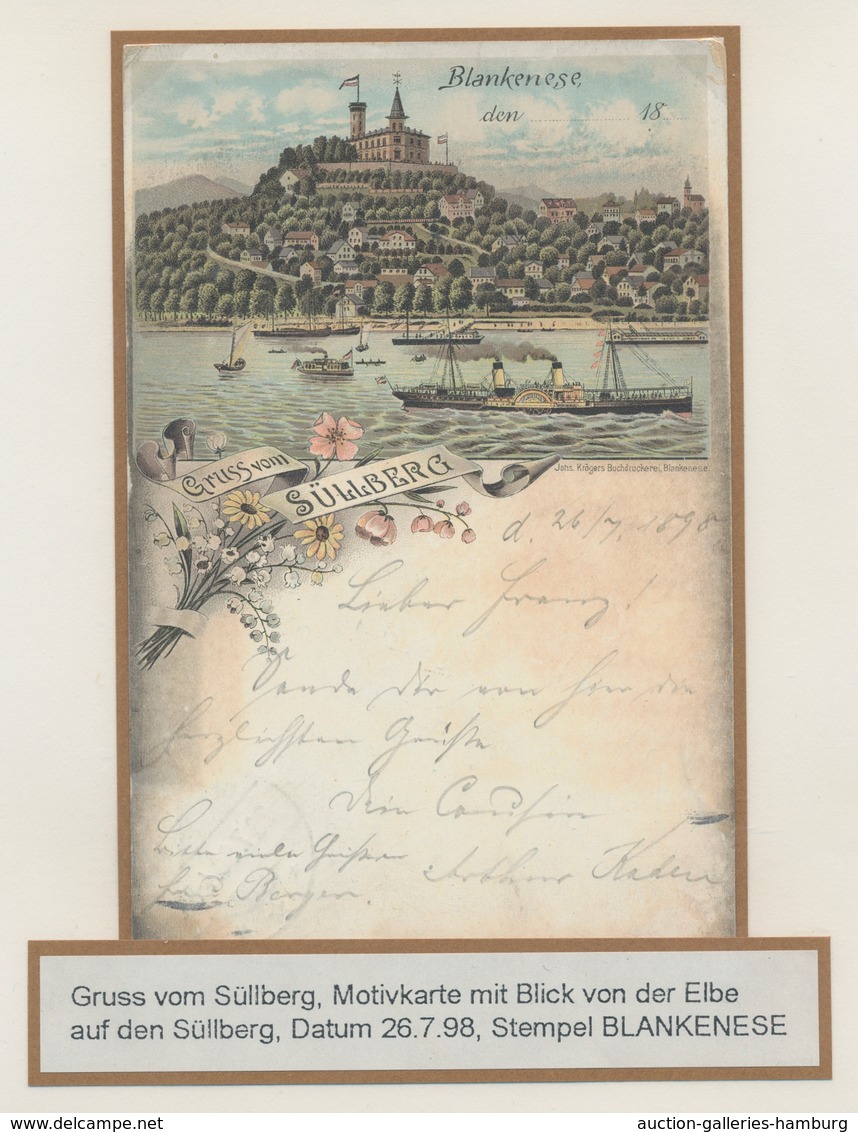 Blankenese,
den 18
Gruss vom
SÜLLBERG
Johs. Krögers Buchdruckerei, Blankenese.
d. 26/7. 1898.
Lieber Franz!
Sende Dir von hier die
herzlichsten Grüße
Dein Cousin
Arthur
Bitte viele
Berger.
Gruss vom Süllberg, Motivkarte mit Blick von der Elbe
auf den Süllberg, Datum 26.7.98, Stempel BLANKENESE
auction-galleries-hamburg